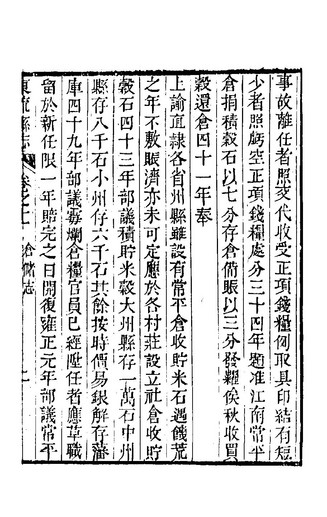 事故離任者照交代收受正項錢糧例取具印結有短
少者照虧空正項錢糧處分三十四年題准江南常平
倉捐積穀石以七分存倉備賑以三分發糶俟秋收買
穀還倉四十一年奉
上諭直隷各省州縣雖設有常平倉收貯米石遇饑荒
之年不敷賑濟亦未可定應於各村莊設立社倉收貯
穀石四十三年部議積貯米穀大州縣存一萬石中州
縣存八千石小州存六千石其餘按時價易銀解存藩
庫四十九年部議霉爛倉糧官員已經陞任者應革職
留於新任限一年賠完之日開復雍正元年部議常平
東流縣志
卷之十一
倉儲志